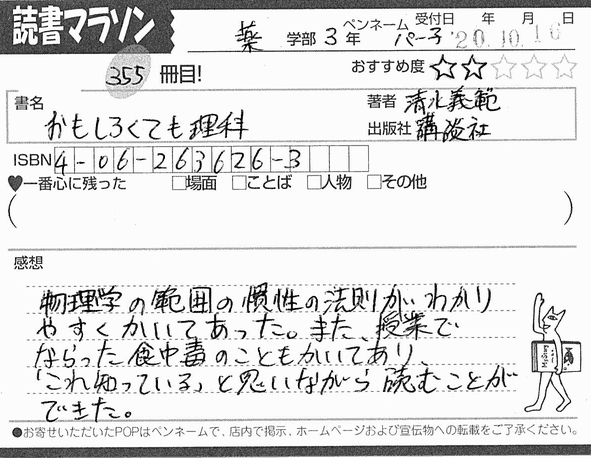 読書マラソン
薬 学部 3 年 ペンネーム パー子 受付日 年 月 日 '20.10.16
355 冊目! おすすめ度 ★★☆☆☆
書名 おもしろくても理科
著者 清水義範
出版社 講談社
ISBN 4-06-263626-3
♥一番心に残った □場面 □ことば □人物 □その他
( )
感想
物理学の範囲の慣性の法則がわかり
やすくかいてあった。また、授業で
ならった食中毒のこともかいてあり、
「これ知っている」と思いながら読むことが
できた。
●お寄せいただいたPOPはペンネームで、店内で掲示、ホームページおよび宣伝物への転載をご了承ください。